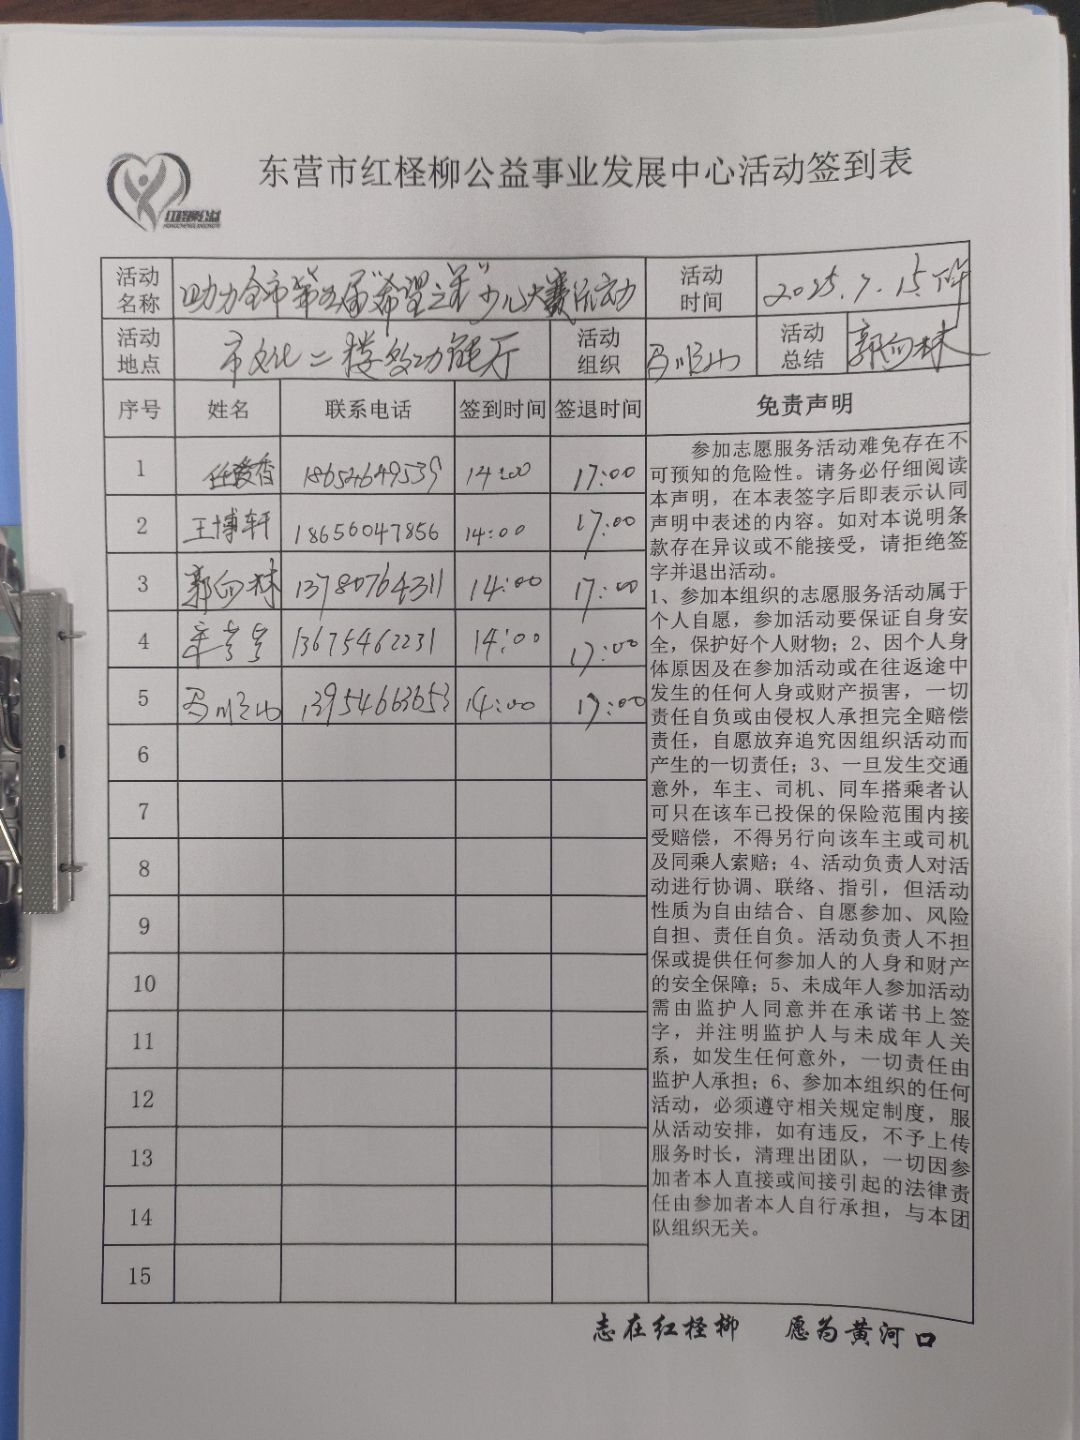 东营市红柽柳公益事业发展中心活动签到表
红柽柳公益
活动名称 助力全市第五届“希望之星”少儿大赛活动 活动时间 2025.7.15.下午
活动地点 市文化二楼多功能厅 活动组织 马顺山 活动总结 郭向林
序号 姓名 联系电话 签到时间 签退时间 免责声明
1 任爱香 18654649539 14:00 17:00
2 王博轩 18656047856 14:00 17:00
3 郭向林 13780764311 14:00 17:00
4 13675462231 14:00 17:00
5 马顺山 13954663653 14:00 17:00
6
7
8
9
10
11
12
13
14
15
参加志愿服务活动难免存在不
可预知的危险性。请务必仔细阅读
本声明，在本表签字后即表示认同
声明中表述的内容。如对本说明条
款存在异议或不能接受，请拒绝签
字并退出活动。
1、参加本组织的志愿服务活动属于
个人自愿，参加活动要保证自身安
全，保护好个人财物；2、因个人身
体原因及在参加活动或在往返途中
发生的任何人身或财产损害，一切
责任自负或由侵权人承担完全赔偿
责任，自愿放弃追究因组织活动而
产生的一切责任；3、一旦发生交通
意外，车主、司机、同车搭乘者认
可只在该车已投保的保险范围内接
受赔偿，不得另行向该车主或司机
及同乘人索赔；4、活动负责人对活
动进行协调、联络、指引，但活动
性质为自由结合、自愿参加、风险
自担、责任自负。活动负责人不担
保或提供任何参加人的人身和财产
的安全保障；5、未成年人参加活动
需由监护人同意并在承诺书上签
字，并注明监护人与未成年人关
系，如发生任何意外，一切责任由
监护人承担；6、参加本组织的任何
活动，必须遵守相关规定制度，服
从活动安排，如有违反，不予上传
服务时长，清理出团队，一切因参
加者本人直接或间接引起的法律责
任由参加者本人自行承担，与本团
队组织无关。
志在红柽柳 愿为黄河口